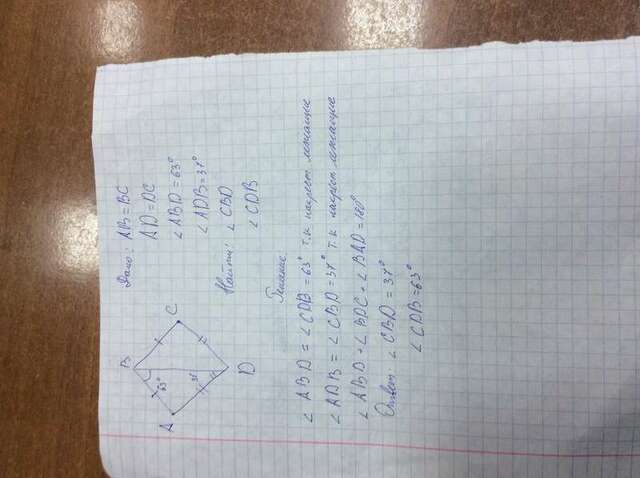 B
C
A
D
63°
31
Дано: AB = BC
AD = DC
∠ABD = 63°
∠ADB = 31°
Найти: ∠CBD
∠CDB
Решение
∠ABD = ∠CDB = 63° т.к накрест лежащие
∠ADB = ∠CBD = 31° т.к накрест лежащие
∠ABD + ∠BDC + ∠BAD = 180°
Ответ ∠CBD = 31°
∠CDB = 63°